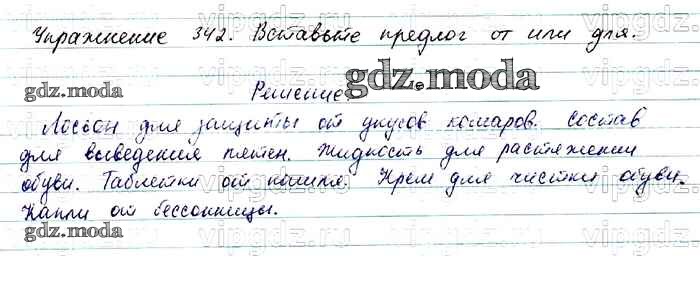 Упражнение 342. Вставьте предлог от или для.
gdz.moda
Решение
gdz.moda
Лосьон для защиты от укусов комаров. Состав
для выведения пятен. Жидкость для растяжении
обуви. Таблетки от кашля. Крем для чистки обуви.
Капли от бессонницы.
gdz.moda
vipgdz.ru